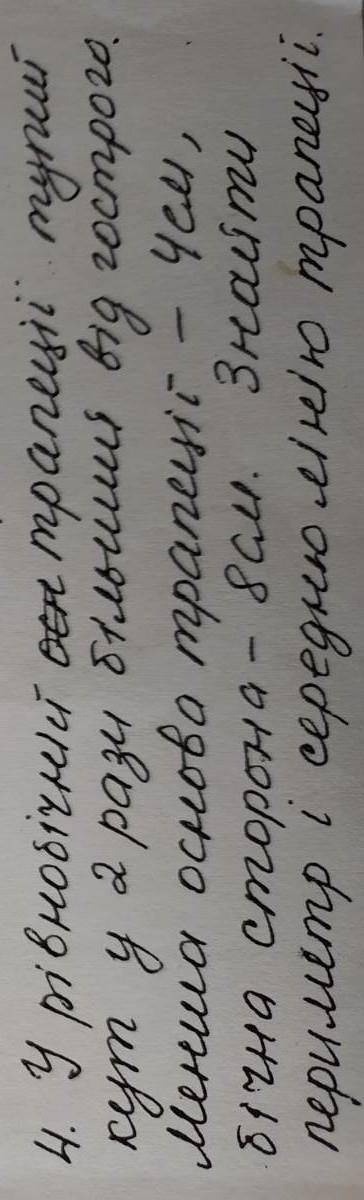 4. У рівнобічній трапеції тупий
кут у 2 рази більший від гострого.
Менша основа трапеції - 4см,
бічна сторона - 8см. Знайти
периметр і середню лінію трапеції.